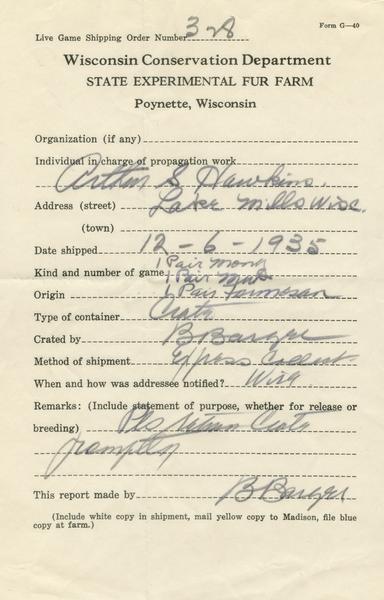 Form G-40
Live Game Shipping Order Number 328
Wisconsin Conservation Department
STATE EXPERIMENTAL FUR FARM
Poynette, Wisconsin
Organization (if any)
Individual in charge of propagation work
Arthur S Hawkins.
Address (street) Lake Mills Wisc.
(town)
Date shipped 12-6-1935
1 Pair Mong
Kind and number of game 1 Pair
Origin 1 Pair Formosan
Type of container Crate
Crated by B Barger
Method of shipment Express Collect
When and how was addressee notified? Wire
Remarks: (Include statement of purpose, whether for release or
breeding) Pls return Crate
promptly
This report made by B Barger
(Include white copy in shipment, mail yellow copy to Madison, file blue
copy at farm.)